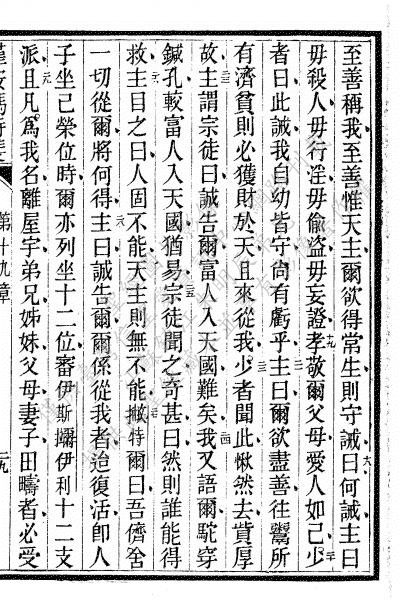 至善稱我至善惟天主爾欲得常生則守誡曰何誡主曰
毋殺人毋行淫毋偷盜毋妄證孝敬爾父母愛人如己少
者曰此誡我自幼皆守尙有虧乎主曰爾欲盡善往鬻所
有濟貧則必獲財於天且來從我少者聞此愀然去貲厚
故主謂宗徒曰誠告爾富人入天國難矣我又語爾駝穿
鍼孔較富人入天國猶易宗徒聞之奇甚曰然則誰能得
救主目之曰人固不能天主則無不能撇特爾曰吾儕舍
一切從爾將何得主曰誠告爾爾係從我者迨復活卽人
子坐己榮位時爾亦列坐十二位審伊斯壩伊利十二支
派且凡爲我名離屋宇弟兄姊妹父母妻子田疇者必受
第十九章